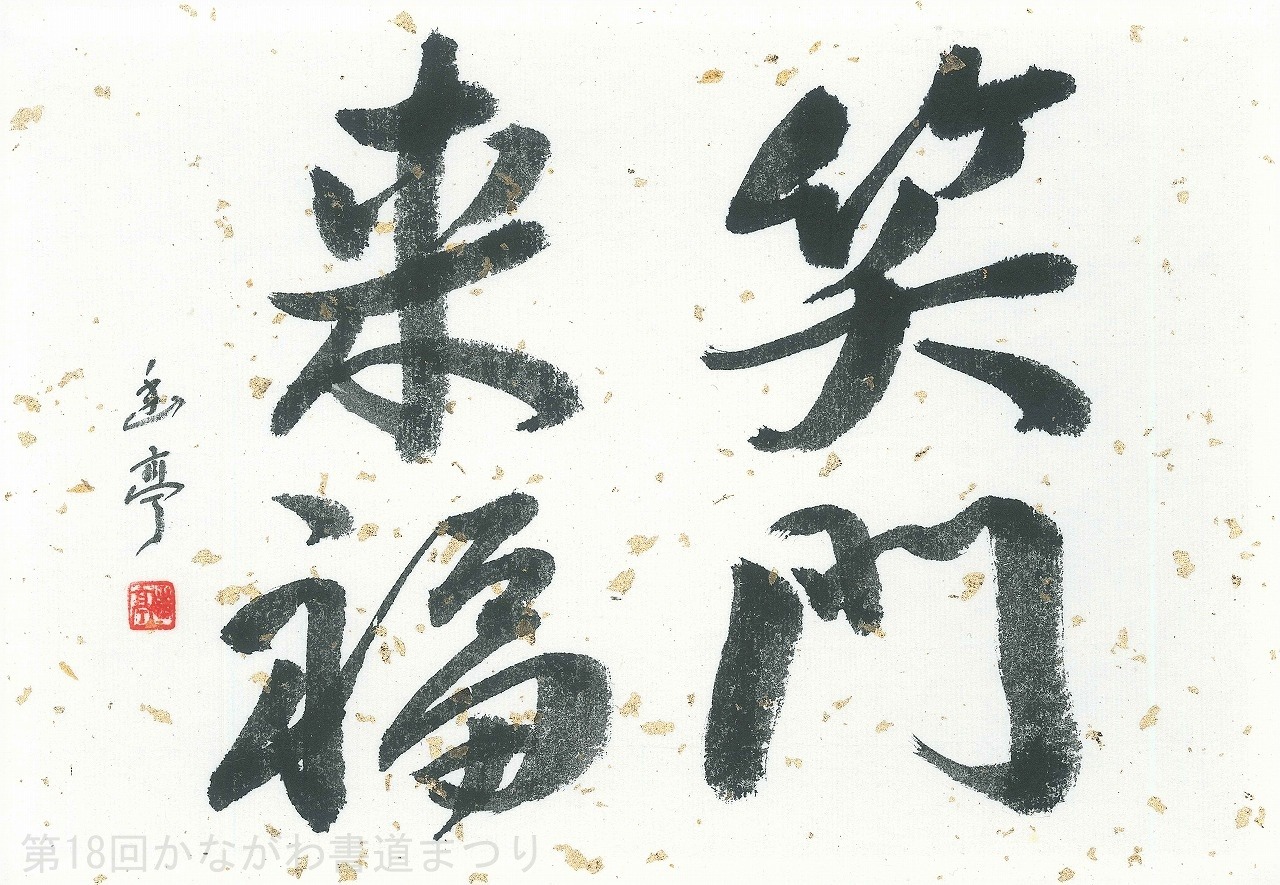 笑門
来福
第18回かながわ書道まつり